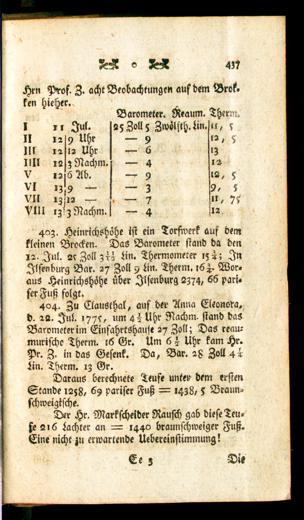 437
Hrn Prof. Z. acht Beobachtungen auf dem Brok-
ken hieher.
Barometer. Reaum. Therm.
I 11 Jul. 25 Zoll 5 Zwölfth. Lin. 11, 5
II 12 9 Uhr — 9 12, 5
III 12 12 Uhr — 6 13
IIII 12 3 Nachm. — 4 12
V 12 6 Ab. — 9 12, 5
VI 13 9 — — 3 9, 5
VII 13 12 — — 7 11, 75
VIII 13 3 Nachm. — 4 12
403. Heinrichshöhe ist ein Torfwerk auf dem
kleinen Brocken. Das Barometer stand da den
12. Jul. 25 Zoll 3 1/2 Lin. Thermometer 15 1/4; In
Ilsenburg Bar. 27 Zoll 9 Lin. Therm. 16 1/4. Wor-
aus Heinrichshöhe über Ilsenburg 2374, 66 pari-
ser Fuß folgt.
404. Zu Clausthal, auf der Anna Eleonora,
d. 22. Jul. 1775, um 4 1/2 Uhr Nachm. stand das
Barometer im Einfahrtshause 27 Zoll; Das reau-
murische Therm. 16 Gr. Um 6 1/2 Uhr kam Hr.
Pr. Z. in das Gesenk. Da, Bar. 28 Zoll 4 1/4
Lin. Therm. 13 Gr.
Daraus berechnete Teufe unter dem ersten
Stande 1258, 69 pariser Fuß = 1438, 5 Braun-
schweigische.
Der Hr. Markscheider Rausch gab diese Teu-
fe 216 Lachter an = 1440 braunschweiger Fuß.
Eine nicht zu erwartende Uebereinstimmung!
Ee 3 Die